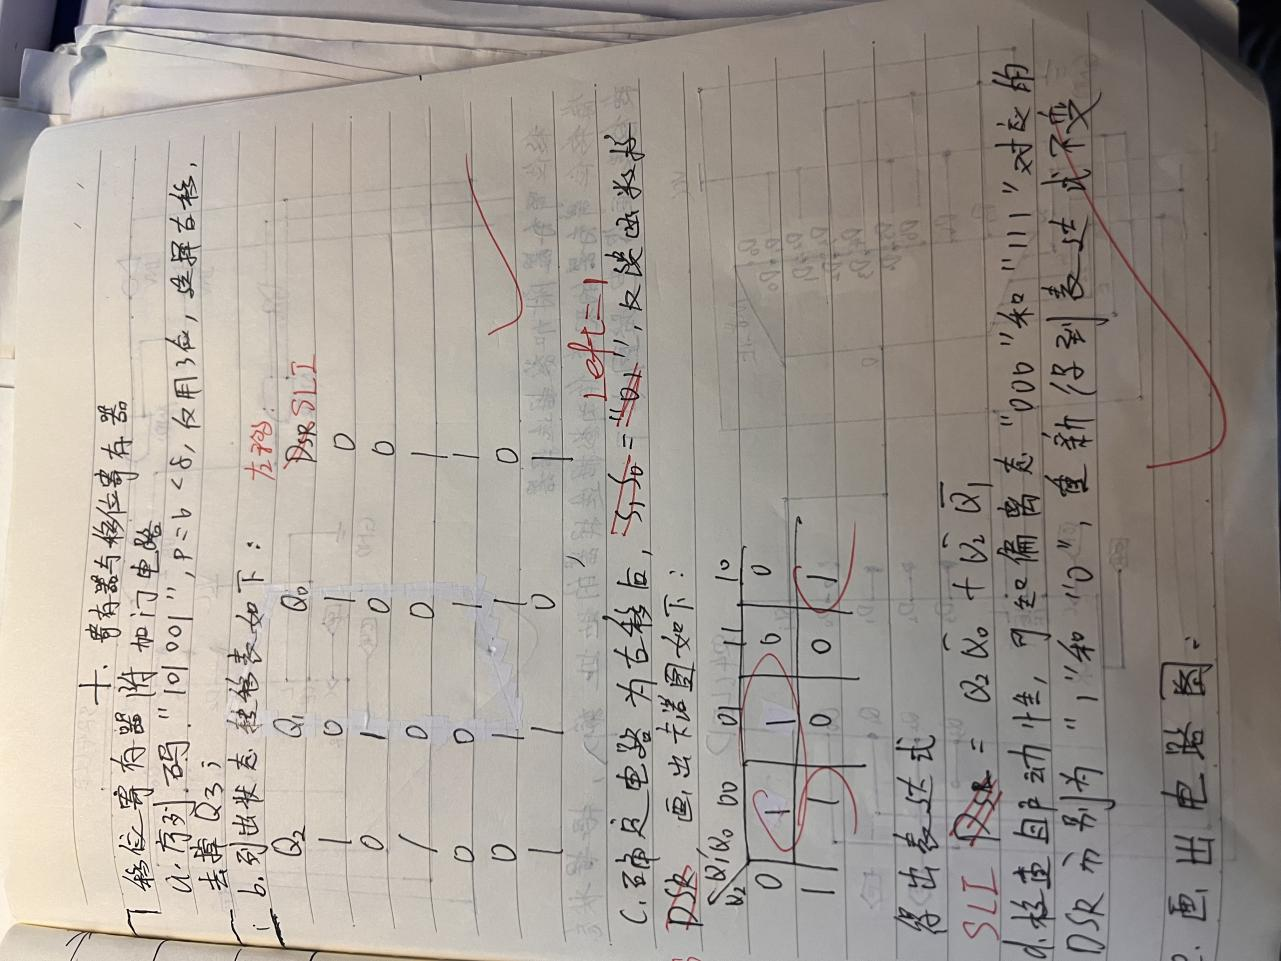 十、寄存器与移位寄存器
移位寄存器附加门电路
a. 序列码"101001", P=6<8, 仅用3位, 选择右移,
去掉Q3;
b. 列出状态转移表如下:
Q2 Q1 Q0 DSR SLI
1 0 1 0
0 1 0 0
1 0 0 1
0 0 1 1
0 1 1 0
1 1 0 1
c. 确定电路为右移后, S1S0="01", Left=1 反馈函数按
DSR 画出卡诺图如下:
Q2 Q1Q0 00 01 11 10
0 1 1 0 0
1 1 0 0 1
得出表达式
SLI DSR = Q2Q̄0+Q̄2Q̄1
d. 检查自启动性, 可知偏离态"000"和"111"对应的
DSR分别为"1"和"0", 重新得到表达式不变
画出电路图: